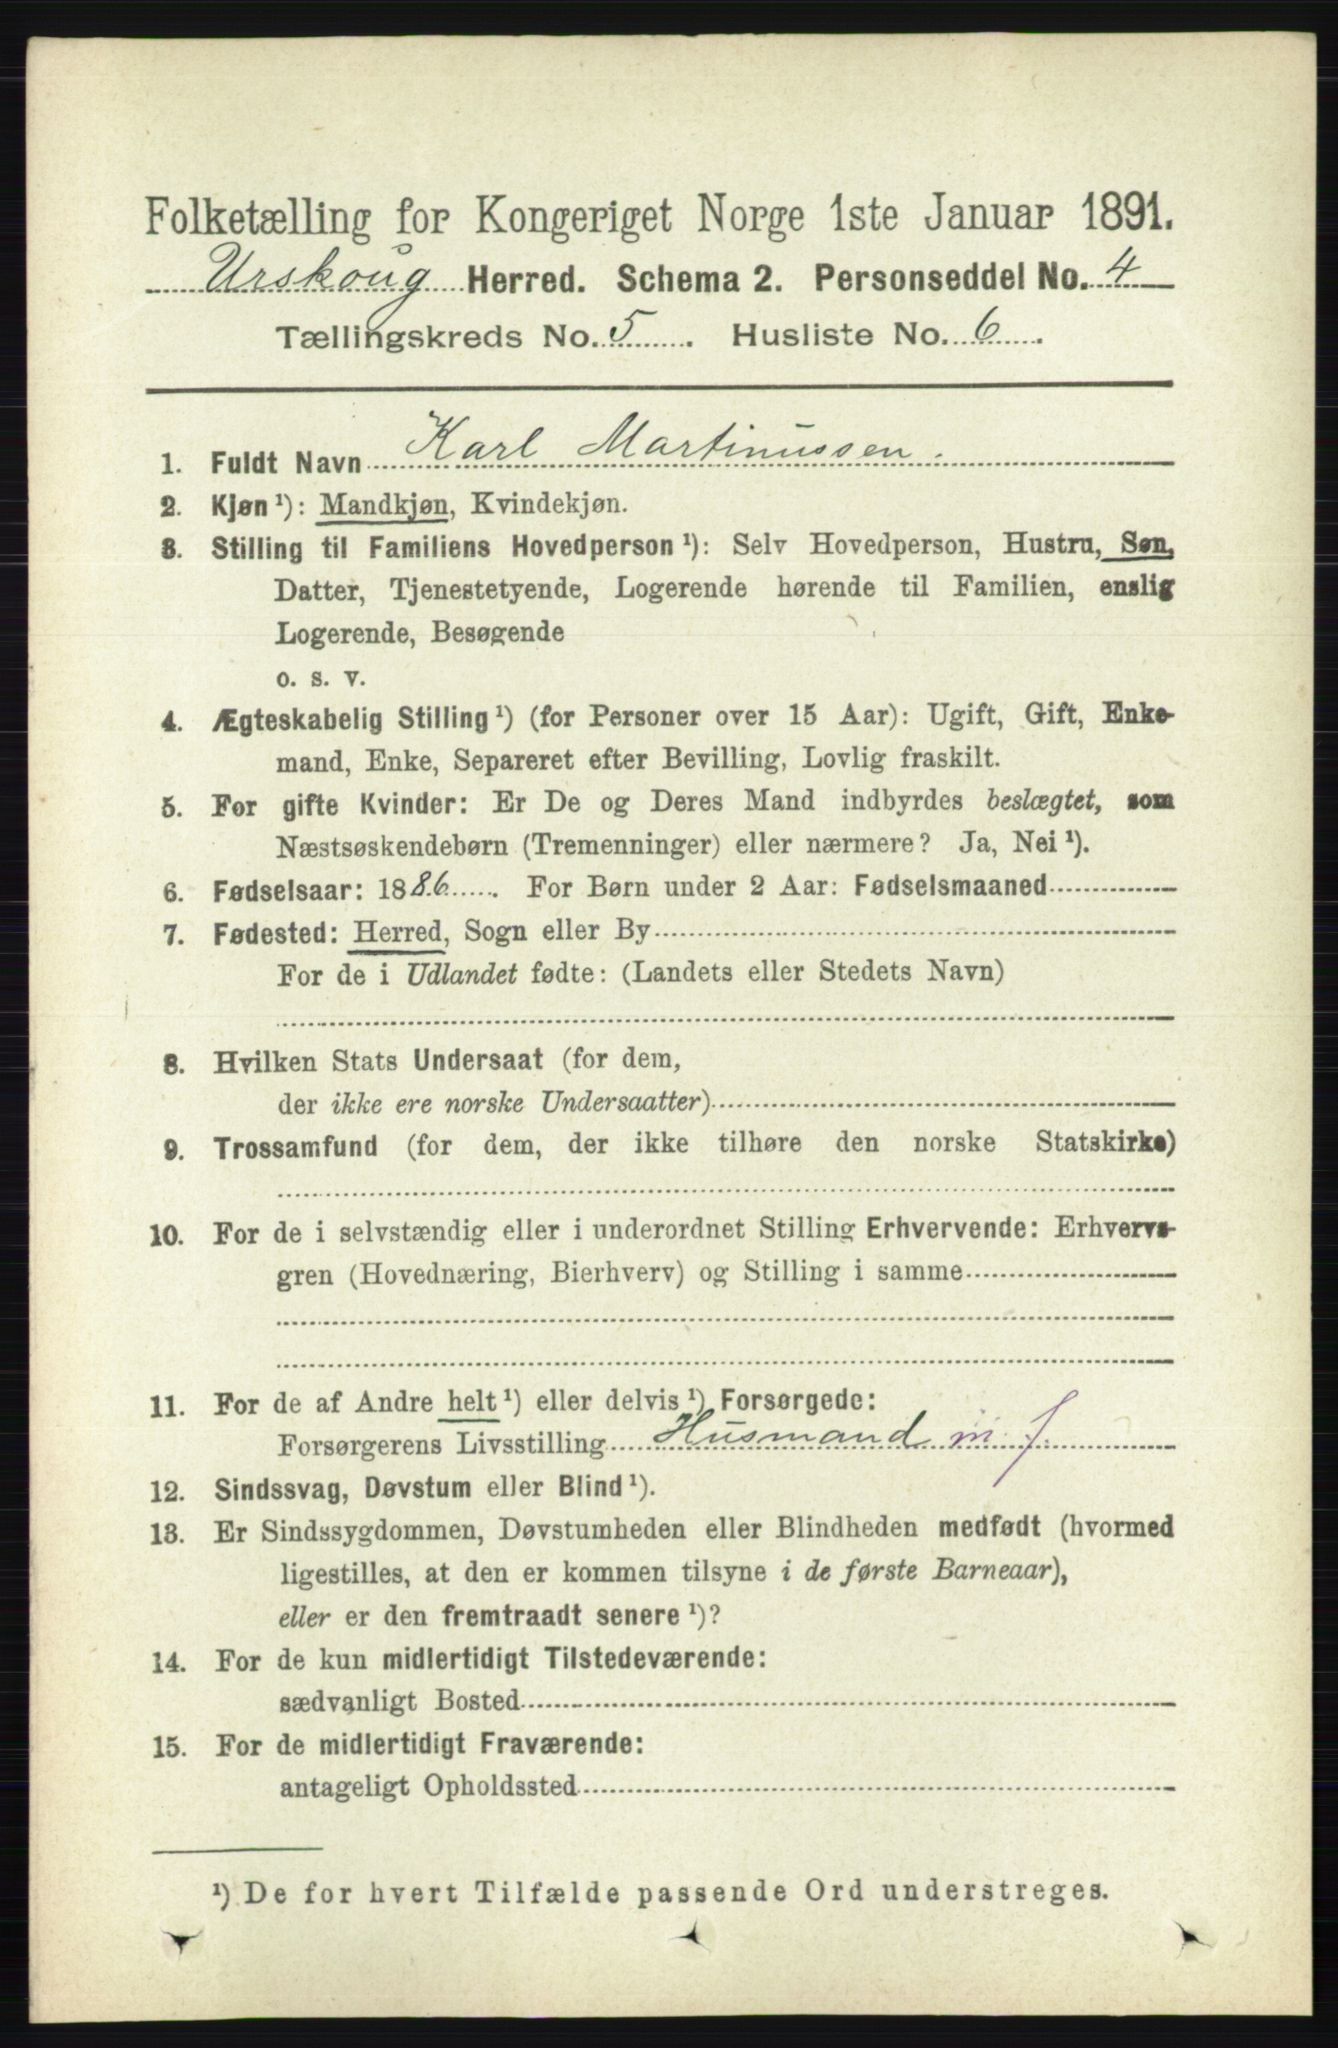 Folketælling for Kongeriget Norge 1ste Januar 1891.
Urskoug Herred. Schema 2. Personseddel No. 4
Tællingskreds No. 5. Husliste No. 6.
1. Fuldt Navn Karl Martinussen.
2. Kjøn ¹): Mandkjøn, Kvindekjøn.
3. Stilling til Familiens Hovedperson ¹): Selv Hovedperson, Hustru, Søn,
Datter, Tjenestetyende, Logerende hørende til Familien, enslig
Logerende, Besøgende
o. s. v.
4. Ægteskabelig Stilling ¹) (for Personer over 15 Aar): Ugift, Gift, Enke-
mand, Enke, Separeret efter Bevilling, Lovlig fraskilt.
5. For gifte Kvinder: Er De og Deres Mand indbyrdes beslægtet, som
Næstsøskendebørn (Tremenninger) eller nærmere? Ja, Nei ¹).
6. Fødselsaar: 1886. For Børn under 2 Aar: Fødselsmaaned
7. Fødested: Herred, Sogn eller By
For de i Udlandet fødte: (Landets eller Stedets Navn)
8. Hvilken Stats Undersaat (for dem,
der ikke ere norske Undersaatter)
9. Trossamfund (for dem, der ikke tilhøre den norske Statskirke)
10. For de i selvstændig eller i underordnet Stilling Erhvervende: Erhvervs-
gren (Hovednæring, Bierhverv) og Stilling i samme
11. For de af Andre helt ¹) eller delvis ¹) Forsørgede:
Forsørgerens Livsstilling Husmand m. J.
12. Sindssvag, Døvstum eller Blind ¹).
13. Er Sindssygdommen, Døvstumheden eller Blindheden medfødt (hvormed
ligestilles, at den er kommen tilsyne i de første Barneaar),
eller er den fremtraadt senere ¹)?
14. For de kun midlertidigt Tilstedeværende:
sædvanligt Bosted
15. For de midlertidigt Fraværende:
antageligt Opholdssted
¹) De for hvert Tilfælde passende Ord understreges.